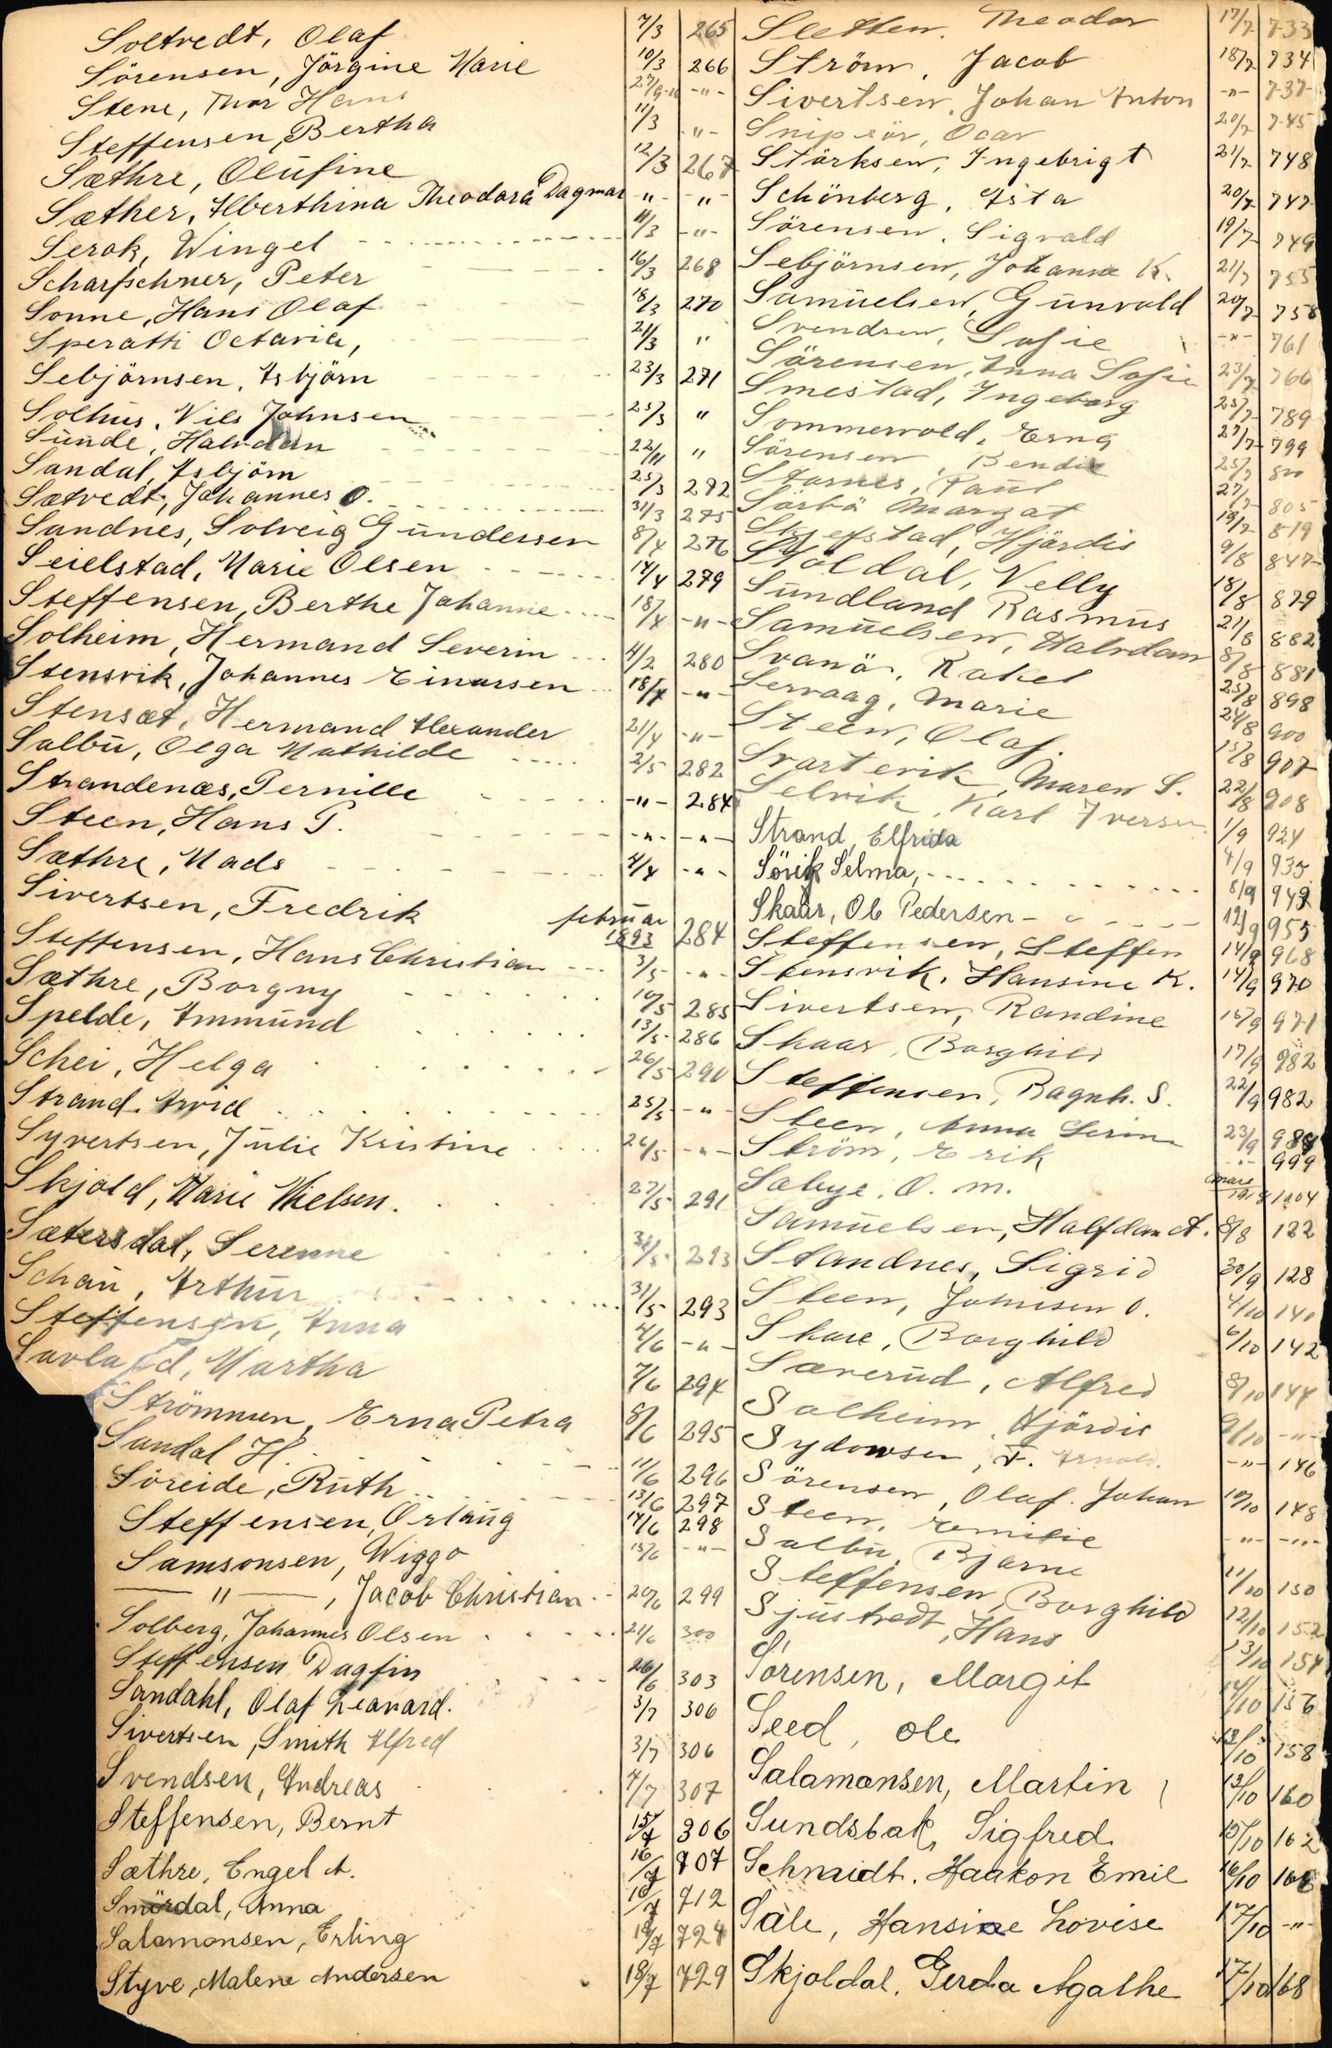 Soltvedt, Olaf 7/3 265
Sörensen, Jörgine Marie 10/3 266
Stene, Thor Hans 27/9-10 -"-
Steffensen, Bertha 11/3 -"-
Sæthre, Olufine 12/3 267
Sæther, Alberthina Theodora Dagmar "- -"
Serok, Wingel 11/3 -"-
Scharfschner, Peter 16/3 268
Sonne, Hans Olaf 18/3 270
Speratti Octavia, 21/3 "
Sebjörnsen, Asbjörn 23/3 271
Solhus, Nils Johnsen 25/3 "
Sunde, Halvdan 22/11 "
Sandal, Asbjörn 25/3 272
Sætvedt, Johannes O. 31/3 275
Sandnes, Solveig Gundersen 8/4 276
Seielstad, Marie Olsen 14/4 279
Steffensen, Berthe Johanne 18/4 -"-
Solheim, Hermand Severin 4/2 280
Stensvik, Johannes Einarsen 18/4 -"-
Stensæt, Hermand Alexander 21/4 -"-
Salbu, Olga Mathilde 2/5 282
Strandenæs, Pernille -"- 284
Steen, Hans P. -"- -"-
Sæthre, Mads 4/4 -"-
Sivertsen, Fredrik februar 1893 284
Steffensen, Hans Christian 3/5 -"-
Sæthre, Borgny 10/5 285
Spelde, Ammund 13/5 286
Schei, Helga 26/5 290
Strand, Arvid 25/5 -"-
Syvertsen, Julie Kristine 26/5 -"-
Skjold, Marie Nielsen. 27/5 291
Sætersdal, Serenne 293
Schau, Arthur 31/5 293
Steffensen, Anna 4/6 -"-
Martha 7/6 294
Strömmen, Erna Petra 8/6 295
Sundal H. 11/6 296
Söreide, Ruth 13/6 297
Steffensen, Orlaug 14/6 298
Samsonsen, Wiggo 15/6 -"-
— " —, Jacob Christian 20/6 299
Solberg, Johannes Olsen 21/6 300
Steffensen Dagfin 26/6 303
Sandahl, Olaf Leonard. 3/7 306
Sivertsen, Smith Alfred 3/7 306
Svendsen, Andreas 4/7 307
Steffensen, Bernt 15/7 306
Sæthre, Engel A. 16/7 707
Smördal, Anna 16/7 712
Salomonsen, Erling 18/7 724
Styve, Malene Andersen 18/7 729
Sletten, Theodor 17/7 733
Ström, Jacob 18/7 734
Sivertsen, Johan Anton -"- 737
Snipsör, Oscar 20/7 745
Störksen, Ingebrigt 21/7 748
Schönberg, Asta 20/7 747
Sörensen, Sigvald 19/7 749
Sebjörnsen, Johanne K. 21/7 755
Samuelsen, Gunvald 20/7 758
Svendsen, Sofie -"- 761
Sörensen, Anna Sofie 23/7 766
Smestad, Ingeborg 25/7 789
Sommervold, Erna 27/7 799
Sörensen, Bendix 25/7 800
Starnes, Paul 27/7 805
Sörbö Margat 18/7 819
Skjefstad, Hjördis 9/8 847
Stoldal, Nelly 18/8 879
Sundland Rasmus 21/8 882
Samuelsen, Halvdan 8/8 881
Svanö, Rakel 25/8 898
Servaag, Marie 24/8 900
Steen, Olaf. 15/8 907
Svartevik, Maren S. 22/8 908
Selvik, Karl Iversen 1/9 924
Strand, Elfrida 4/9 935
Sörik Selma, 8/9 949
Skaar, Ole Pedersen 12/9 955
Steffensen, Steffen 14/9 968
Stensvik, Hansine K. 14/9 970
Sivertsen, Randine 15/9 971
Skaar, Borghild 17/9 982
Steffensen, Ragnh. S. 22/9 982
Steen, Anna Serine 23/9 984
Ström, Erik -"- 999
Sabye, O. M. 1004
Samuelsen, Halfdan A. 8/8 122
Standnes, Sigrid 30/9 128
Steen, Johnsen O. 4/10 140
Skare, Borghild 6/10 142
Sæverud, Alfred 8/10 144
Solheim, Hjördis 9/10 -"-
Sydowsen, F. Arnold. -"- 146
Sörensen, Olaf Johan 10/10 148
Steen, Emilie -"- -"-
Salbu, Bjarne 11/10 150
Steffensen, Borghild 12/10 152
Sjustredt, Hans 13/10 154
Sörensen, Margit 14/10 156
Seed, Ole 13/10 158
Salamonsen, Martin 13/10 160
Sundsbak, Sigfred 15/10 162
Schmidt, Haakon Emil 16/10 166
Säle, Hansine Lovise 17/10 -"-
Skjoldal, Gerda Agathe 17/10 168